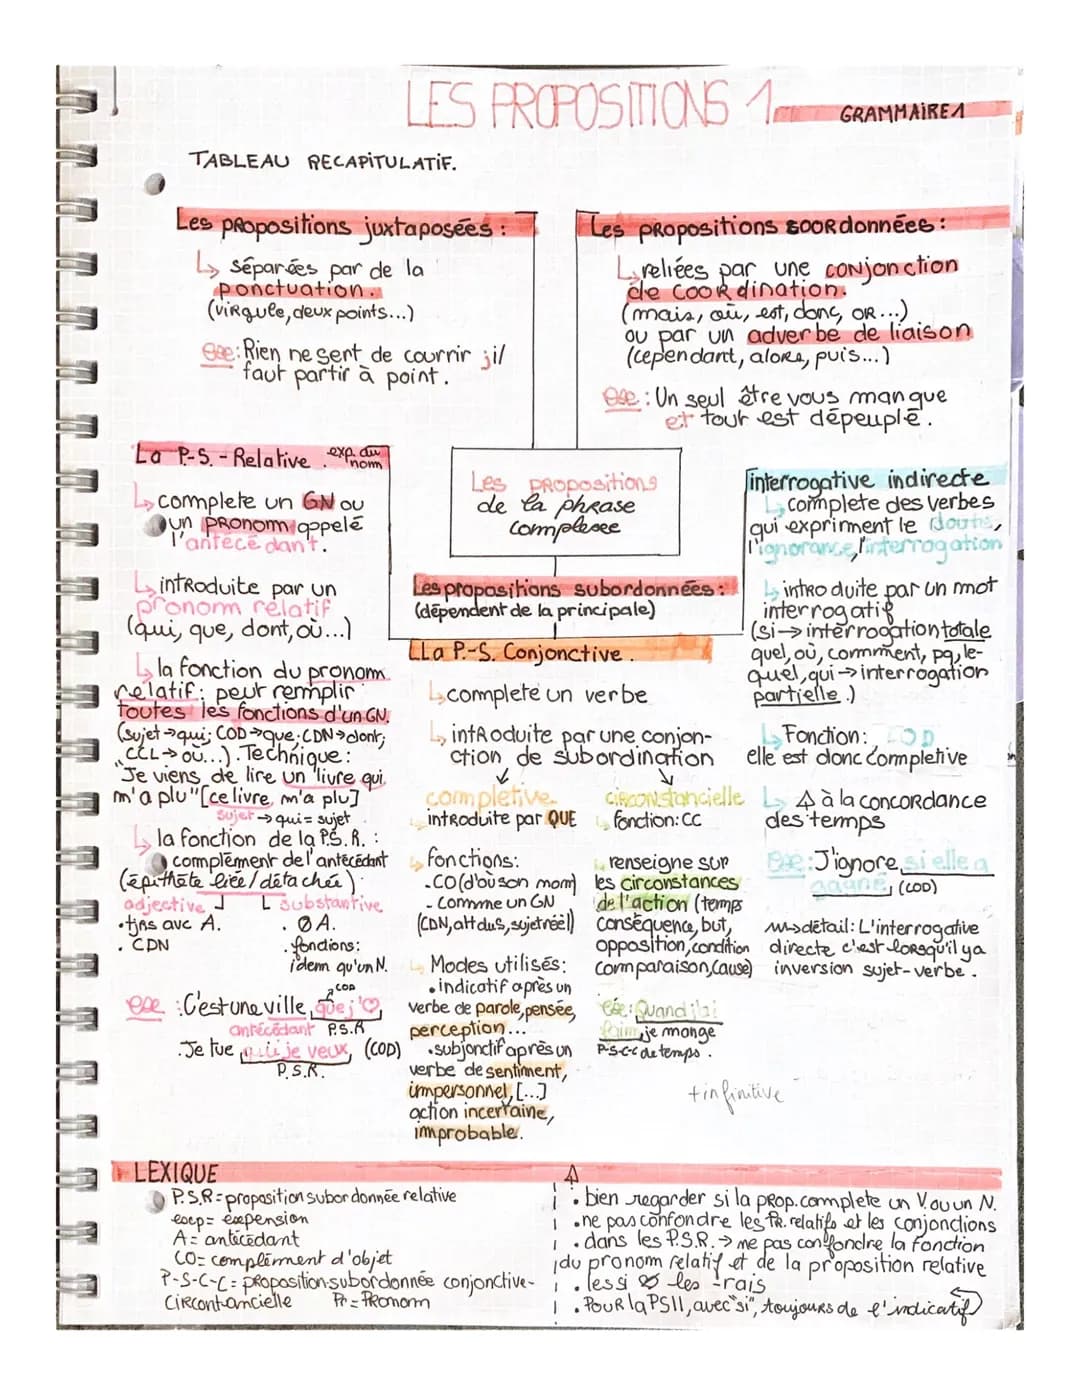 LES PROPOSITIONS 1
GRAMMAIRE 1
TABLEAU RECAPITULATIF.
Les propositions juxtaposées :
↳ séparées par de la
ponctuation.
(virgule, deux points...)
exe : Rien ne sert de courrir ; il
faut partir à point.
Les propositions coordonnées :
↳ reliées par une conjonction
de coordination.
(mais, où, est, donc, or...)
ou par un adverbe de liaison
(cependant, alors, puis...)
exe : Un seul être vous manque
et tout est dépeuplé.
Les propositions
de la phrase
complexe
Les propositions subordonnées :
(dépendent de la principale)
La P.-S.-Relative. exp. du
nom
↳ complete un GN ou
un pronom appelé
l'antécédant.
↳ introduite par un
pronom relatif
(qui, que, dont, où...)
↳ la fonction du pronom
relatif : peut remplir
toutes les fonctions d'un GN.
(sujet → qui ; COD → que ; CDN → dont ;
CCL → où...). Technique :
"Je viens de lire un livre qui
m'a plu" [ce livre m'a plu]
sujet → qui = sujet
↳ la fonction de la P.S.R. :
complément de l'antécédant
(épithète liée / détachée)
adjective substantive
• tjrs avc A. . Ø A.
. CDN . fonctions :
idem qu'un N.
COD
exe : C'est une ville que j'♡
antécédant P.S.R
. Je tue qui je veux (COD)
P.S.R.
La P.-S. Conjonctive.
↳ complete un verbe
↳ introduite par une conjon-
ction de subordination
completive
introduite par QUE
↳ fonctions :
. CO (d'où son mom)
- Comme un GN
(CDN, att du S, sujet réel)
↳ Modes utilisés :
• indicatif après un
verbe de parole, pensée,
perception...
• subjonctif après un
verbe de sentiment,
impersonnel, [...]
action incertaine,
improbable.
circonstancielle
↳ fonction : CC
↳ renseigne sur
les circonstances
de l'action (temps
conséquence, but,
opposition, condition
comparaison, cause)
exe : Quand j'ai
faim, je mange
P-S-C-C de temps.
+ infinitive
interrogative indirecte
↳ complete des verbes
qui expriment le doute,
l'ignorance, l'interrogation
↳ introduite par un mot
interrogatif
(si → interrogation totale
quel, où, comment, pq, le-
quel, qui → interrogation
partielle.)
↳ Fonction : COD
elle est donc completive
↳ ⚠ à la concordance
des temps
exe : J'ignore si elle a
gagné, (COD)
détail : L'interrogative
directe c'est lorsqu'il y a
inversion sujet-verbe.
LEXIQUE
P.S.R = proposition subordonnée relative
exp = expension
A = antécédant
CO = complément d'objet
P-S-C-C = proposition-subordonnée conjonctive-
Circontancielle Pr = Pronom
⚠
• bien regarder si la prop. complete un V. ou un N.
• ne pas confondre les Pr. relatifs et les conjonctions
• dans les P.S.R. → ne pas confondre la fonction
du pronom relatif et de la proposition relative
• les si les -rais
. Pour la PSII, avec "si", toujours de l'indicatif